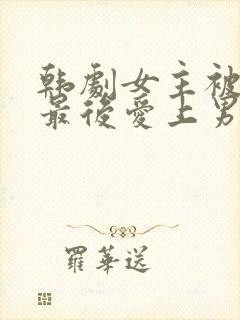 韩剧女主被
最后爱上男
羅華送